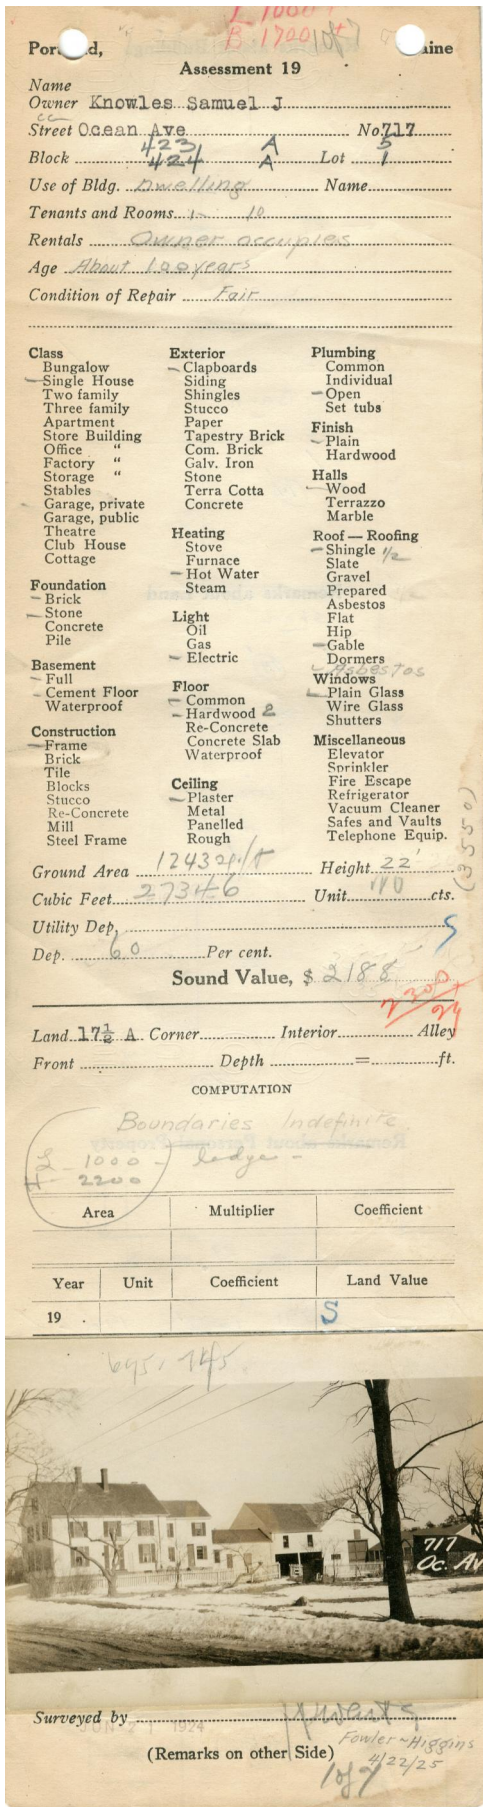 L 1000
B. 1700 + 1 of 7
Portland, Maine
Assessment 19
Name
Owner Knowles Samuel J
Street Ocean Ave No 717
423 A 5
Block 424 A Lot 1
Use of Bldg. Dwelling Name
Tenants and Rooms 1- 10
Rentals Owner occupies
Age About 100 years
Condition of Repair Fair
Class
Bungalow
Single House
Two family
Three family
Apartment
Store Building
Office "
Factory "
Storage "
Stables
Garage, private
Garage, public
Theatre
Club House
Cottage
Foundation
Brick
Stone
Concrete
Pile
Basement
Full
Cement Floor
Waterproof
Construction
Frame
Brick
Tile
Blocks
Stucco
Re-Concrete
Mill
Steel Frame
Exterior
Clapboards
Siding
Shingles
Stucco
Paper
Tapestry Brick
Com. Brick
Galv. Iron
Stone
Terra Cotta
Concrete
Heating
Stove
Furnace
Hot Water
Steam
Light
Oil
Gas
Electric
Floor
Common
Hardwood 2
Re-Concrete
Concrete Slab
Waterproof
Ceiling
Plaster
Metal
Panelled
Rough
Plumbing
Common
Individual
Open
Set tubs
Finish
Plain
Hardwood
Halls
Wood
Terrazzo
Marble
Roof — Roofing
Shingle 1/2
Slate
Gravel
Prepared
Asbestos
Flat
Hip
Gable
Dormers
Asbestos
Windows
Plain Glass
Wire Glass
Shutters
Miscellaneous
Elevator
Sprinkler
Fire Escape
Refrigerator
Vacuum Cleaner
Safes and Vaults
Telephone Equip.
(3550)
Ground Area 1243 sq/ft Height 22'
Cubic Feet 27346 Unit cts.
Utility Dep,
Dep. 60 Per cent.
S
Sound Value, $ 2188
2300
Land 17½ A Corner Interior Alley
Front Depth = ft.
COMPUTATION
Boundaries Indefinite
L - 1000 - ledge -
H - 2200
Area Multiplier Coefficient
Year Unit Coefficient Land Value
19 . S
695, 745.
717
Oc. Av
Surveyed by
JUN 21 1924
Fowler ~ Higgins
(Remarks on other Side)
4/22/25
1 of 7